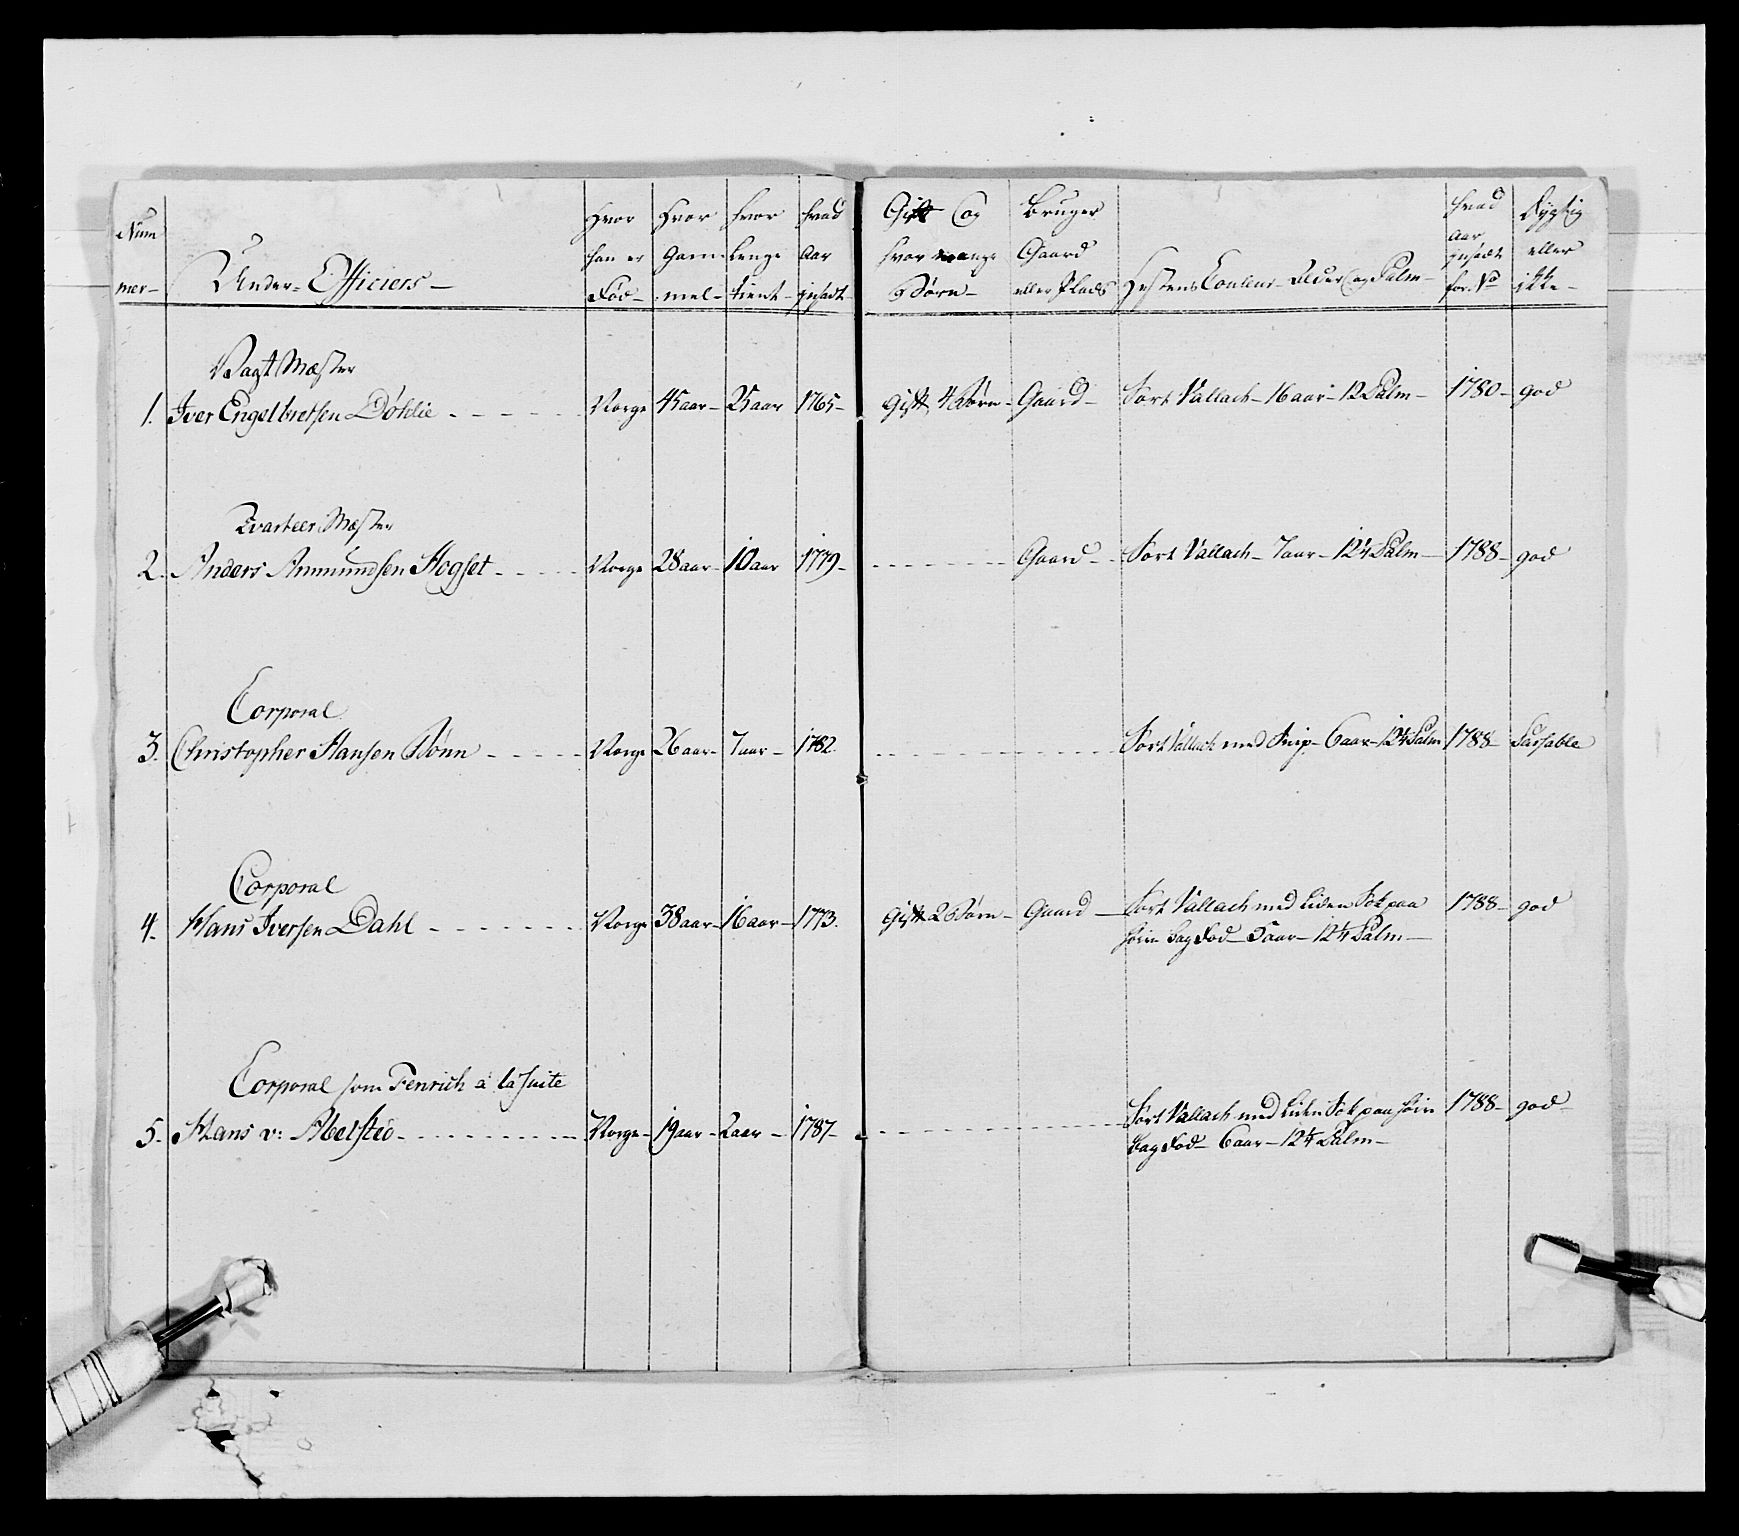 Num
mer-
Under-Officiers-
Hvor
han er
Fød-
Hvor
Gam-
mel-
Hvor
lenge
tient-
Hvad
Aar
indsadt
Gift Og
hvor mange
Børn-
Bruger
Gaard
eller Plads
Hestens Couleur- Alder Og Palm-
Hvad
Aar
indsadt
for No
Dygtig
eller
ikke-
Vagt Mæster
1. Iver Engelbretsen Døhlie - Norge 45 aar- 25 aar 1765- Gift 4 Børn- Gaard- Sort Vallach- 16 aar- 12 Palm- 1780- god
Qvarteer Mæster
2. Anders Ammundsen Hogset - Norge 28 aar- 10 aar 1779- Gaard- Sort Vallach- 7 aar- 12¼ Palm- 1788- god
Corporal
3. Christopher Hansen Bønn - Norge 26 aar- 7 aar- 1782 Sort Vallach med Snip- 6 aar- 12¼ Palm 1788- Passable
Corporal
4. Hans Iversen Dahl - Norge 38 aar- 16 aar- 1773. Gift 2 Børn- Gaard- Sort Vallach med liden Sok paa 1788- god
høire bag Fod- 5 aar- 12¼ Palm-
Corporal som Fenrich a la suite
5. Hans v: Abelsted - Norge- 19 aar- 2 aar- 1787- Sort Vallach med liden Sok paa høire 1788- god-
bag Fod- 6 aar- 12¼ Palm-